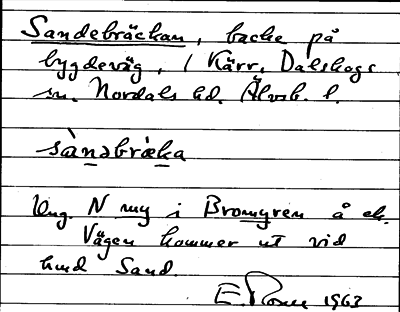 Sandebräckan, backe på
bygdeväg, i Kärr, Dalskogs
sn. Nordals hd. Älvsb. l.
sànəbrӕ̀ka
Ung. N my i Bromyren å ek.
Vägen kommer ut vid
hmd Sand.
E. 1963